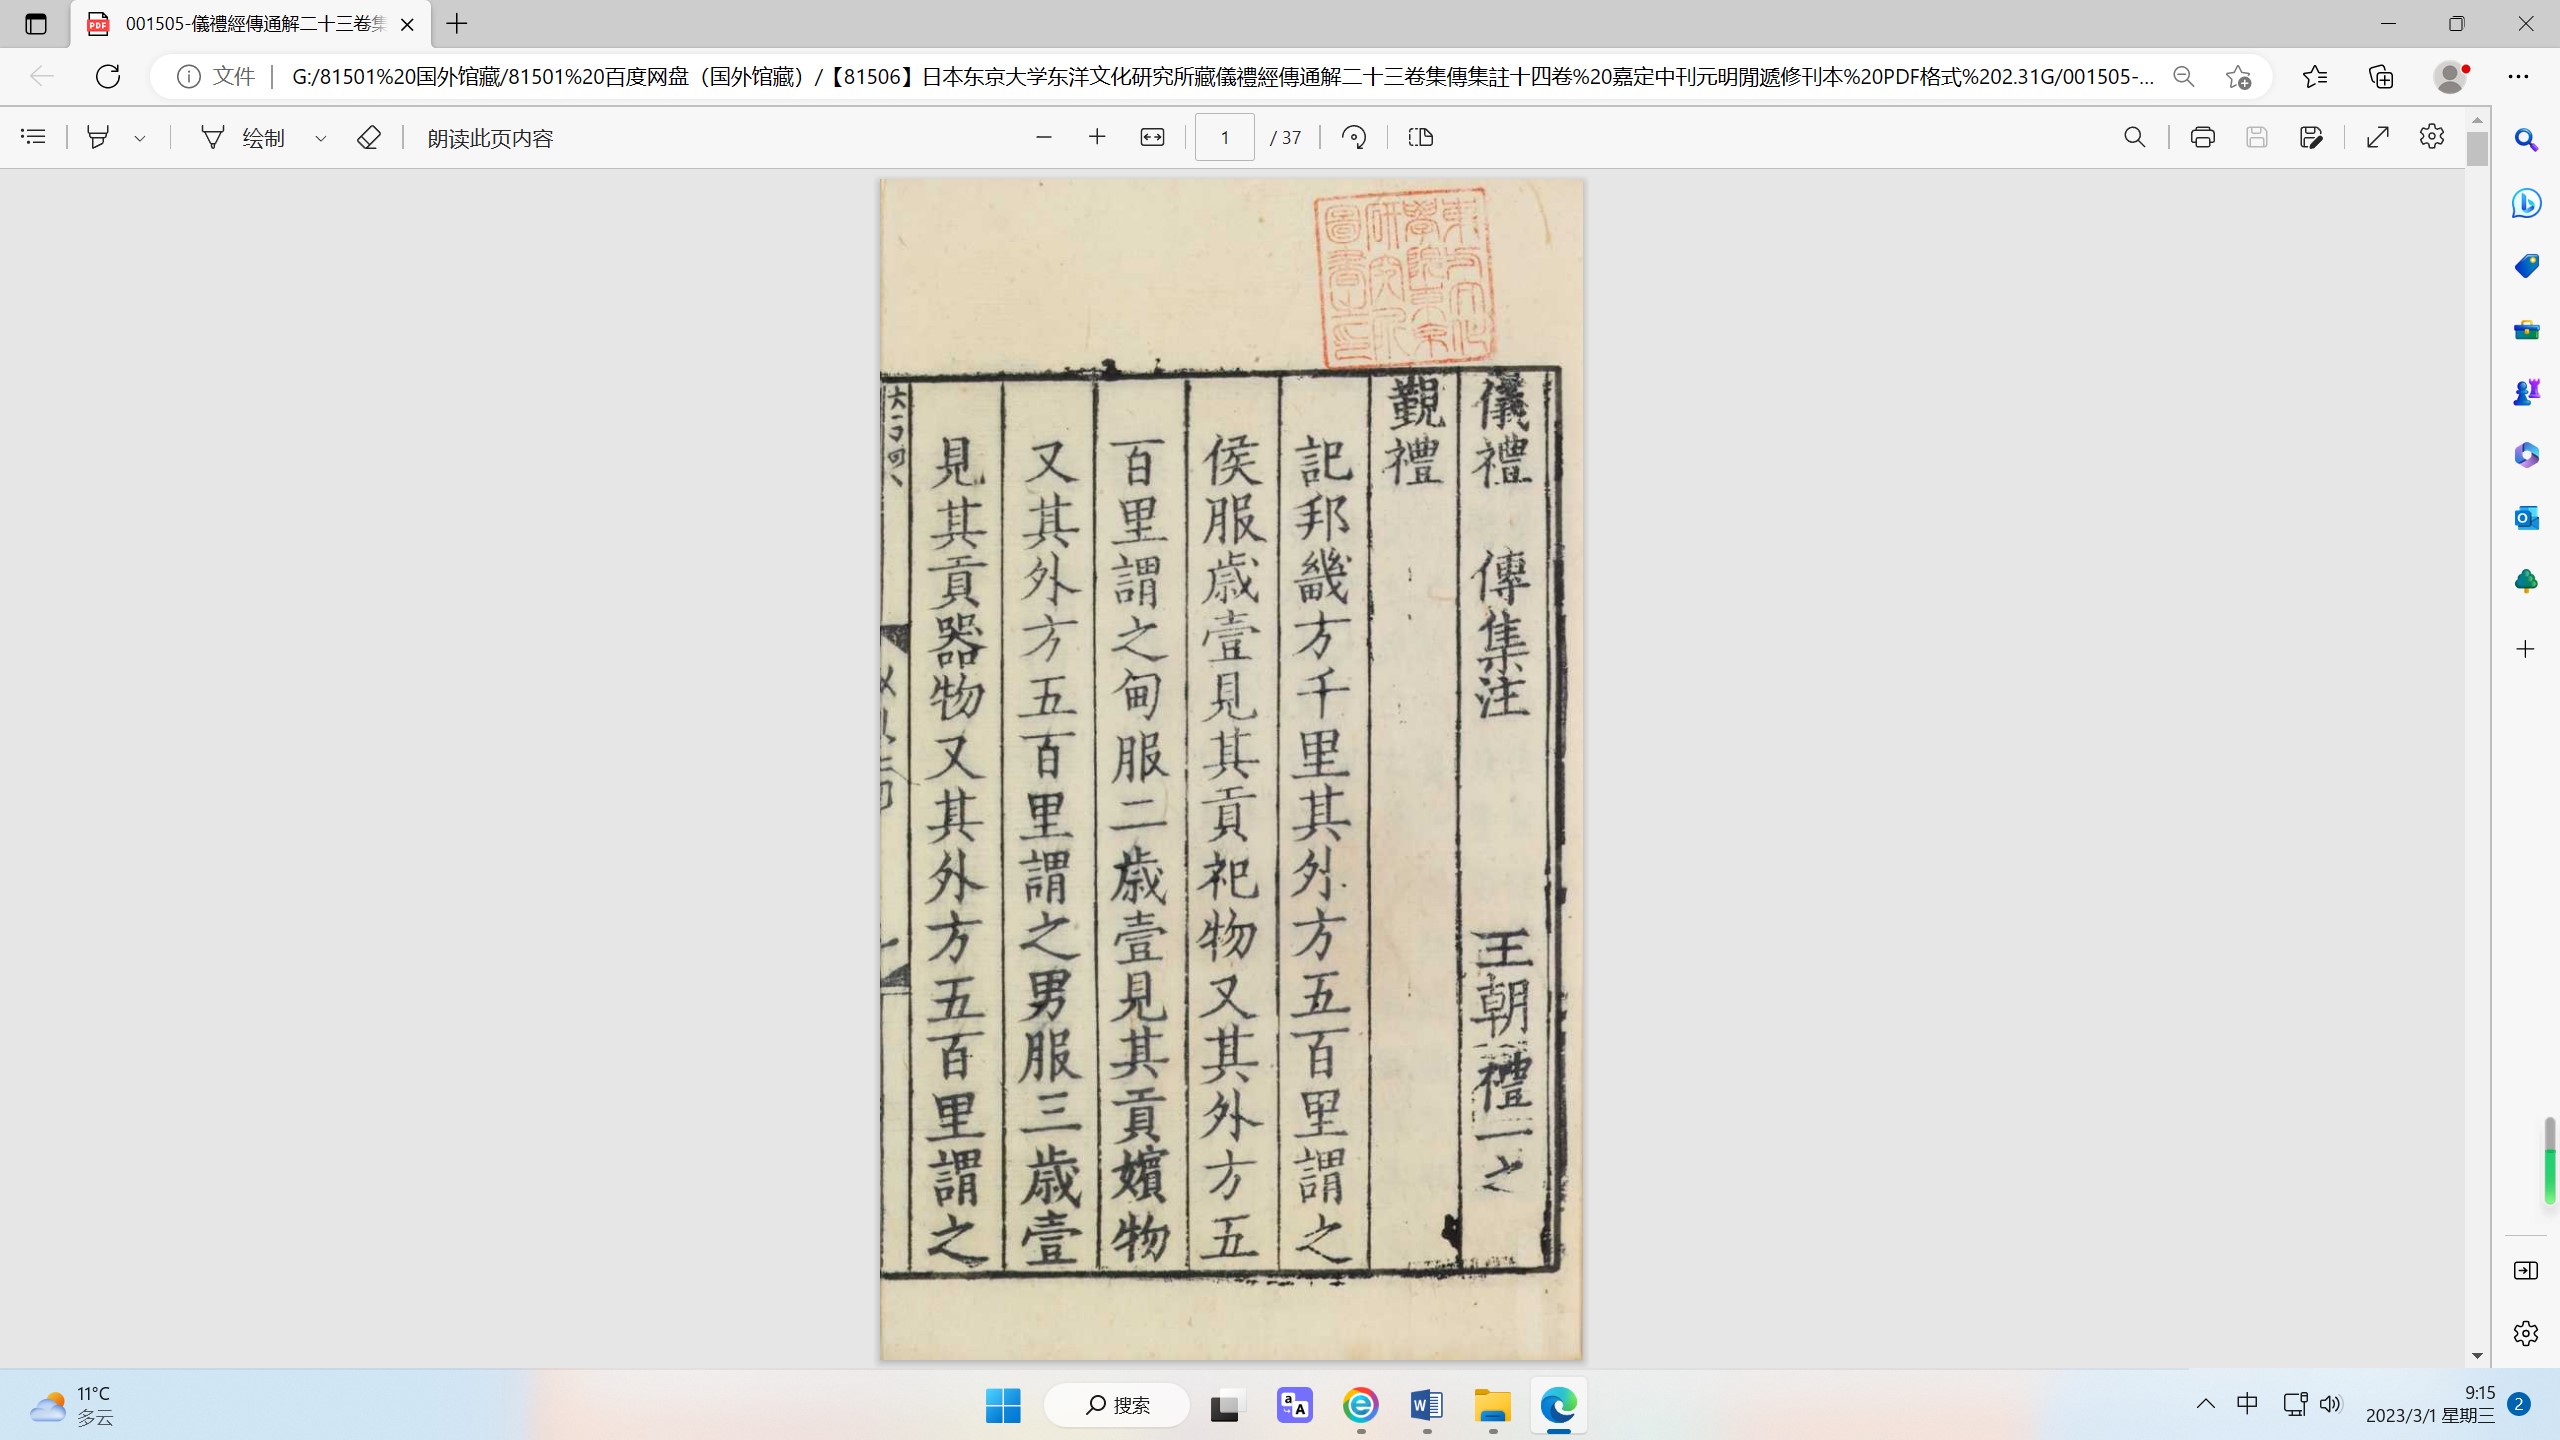 001505-儀禮經傳通解二十三卷集
文件
G:/81501%20国外馆藏/81501%20百度网盘（国外馆藏）/【81506】日本东京大学东洋文化研究所藏儀禮經傳通解二十三卷集傳集註十四卷%20嘉定中刊元明閒遞修刊本%20PDF格式%202.31G/001505-...
绘制
朗读此页内容
1
/ 37
東方文化
學院東京
研究所
圖書之印
儀禮 傳集注 王朝禮一之
覲禮
記邦畿方千里其外方五百里謂之
侯服歲壹見其貢祀物又其外方五
百里謂之甸服二歲壹見其貢嬪物
又其外方五百里謂之男服三歲壹
見其貢器物又其外方五百里謂之
11°C
多云
搜索
中
9:15
2023/3/1 星期三
2